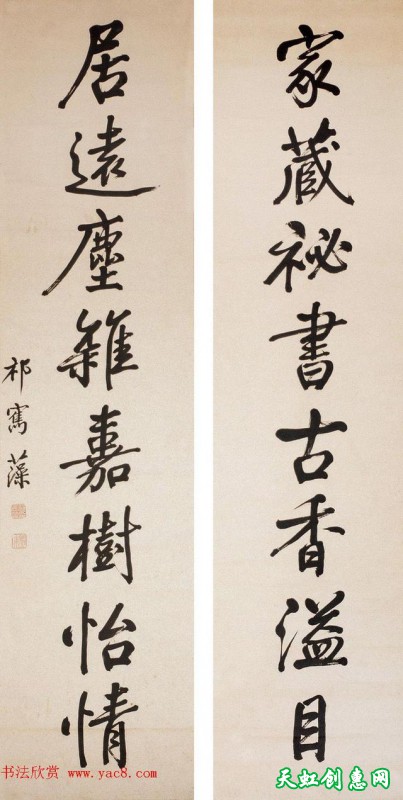 家藏祕書古香溢目
居遠塵雜嘉樹怡情
祁寯藻
书法欣赏
www.yac8.com
天虹创惠网